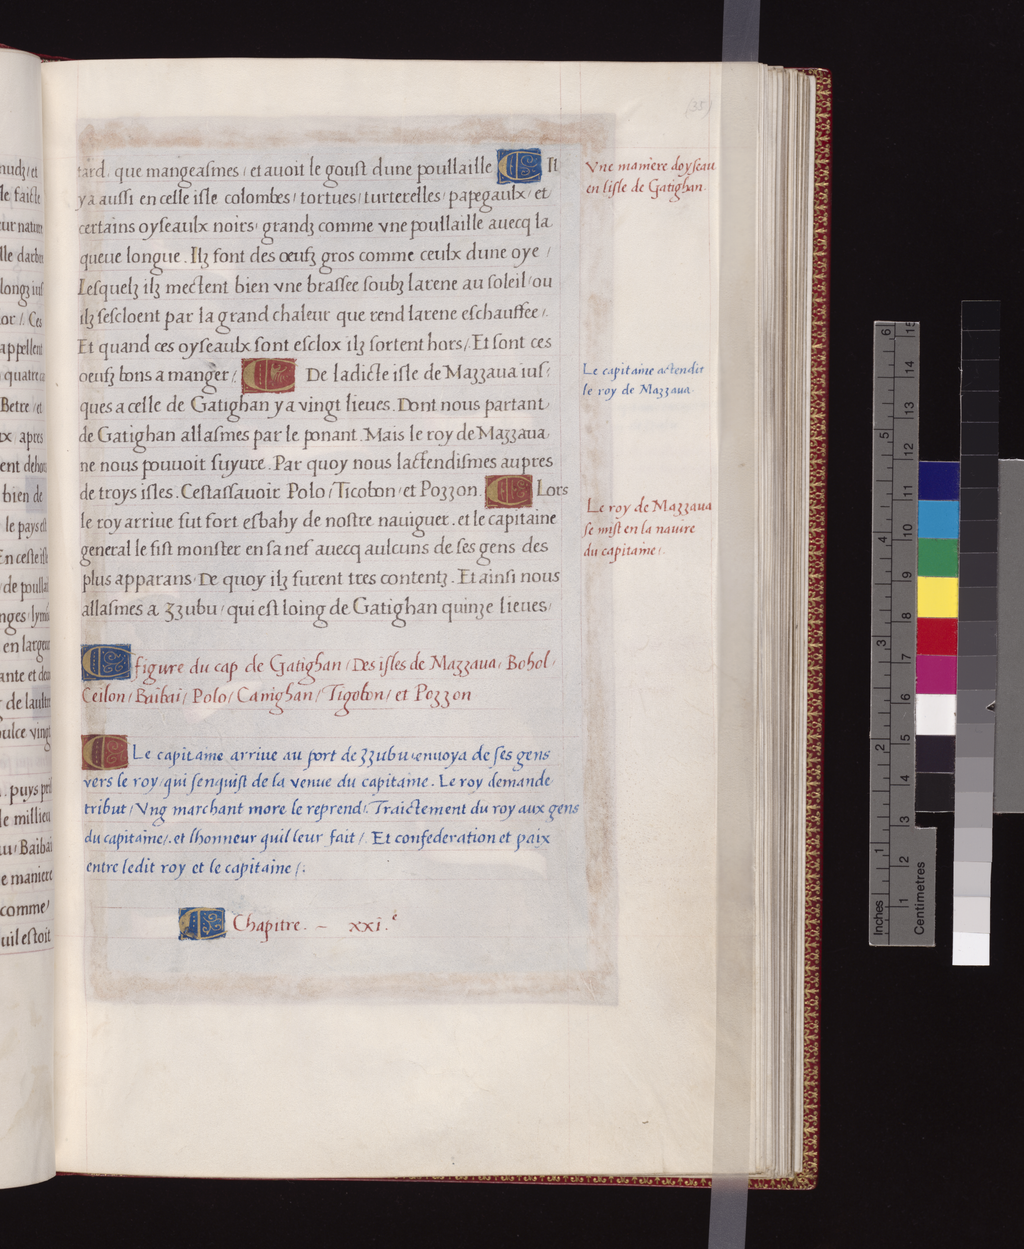 (35)
tard, que mangeasmes / et auoit le goust dune poullaille Il
y a aussi en celle isle colombes / tortues / turterelles / papegaulx / et
certains oyseaulx noirs / grandz comme vne poullaille auecq la
queue longue. Ilz font des œufz gros comme ceulx dune oye /
Lesquelz ilz mectent bien vne brassee soubz larene au soleil / ou
ilz sescloent par la grand chaleur que rend larene eschauffee /.
Et quand ces oyseaulx sont esclox ilz sortent hors /. Et sont ces
oeufz bons a manger /. De ladicte isle de Mazzaua ius=
ques a celle de Gatighan y a vingt lieues. Dont nous partant
de Gatighan allasmes par le ponant. Mais le roy de Mazzaua
ne nous pouuoit suyure. Par quoy nous lactendismes aupres
de troys isles. Cestassauoir Polo / Ticobon / et Pozzon. Lors
le roy arriue fut fort esbahy de nostre nauiguer. et le capitaine
general le fist monster en sa nef auecq aulcuns de ses gens des
plus apparans. De quoy ilz furent tres contentz. Et ainsi nous
allasmes a Zzubu / qui est loing de Gatighan quinze lieues /
figure du cap de Gatighan / Des isles de Mazzaua / Bohol /
Ceilon / Baibai / Polo / Canighan / Tigobon / et Pozzon
Le capitaine arriue au port de Zzubu enuoya de ses gens
vers le roy / qui senquist de la venue du capitaine. Le roy demande
tribut / Vng marchant more le reprend /. Traictement du roy aux gens
du capitaine /. et lhonneur quil leur fait /. Et confederation et paix
entre ledit roy et le capitaine /:
Chapitre. – xxi.e
Vne maniere doyseau
en lisle de Gatighan.
Le capitaine actendit
le roy de Mazzaua.
Le roy de Mazzaua
se mist en la nauire
du capitaine /.
nudz / et
le faicte
eur nature
longz ius
or /. Ces
appellent
quatre
Betre / et
ix / apres
ent dehors
bien de
le pays est
En ceste isle
de poullai
nges / lymo
en largeur
ante et
de laultre
oulce vingt
. puys
le millieu
Baibai
e maniere
comme /
uil estoit
Inches
1 2 3 4 5 6
Centimetres
1 2 3 4 5 6 7 8 9 10 11 12 13 14 15